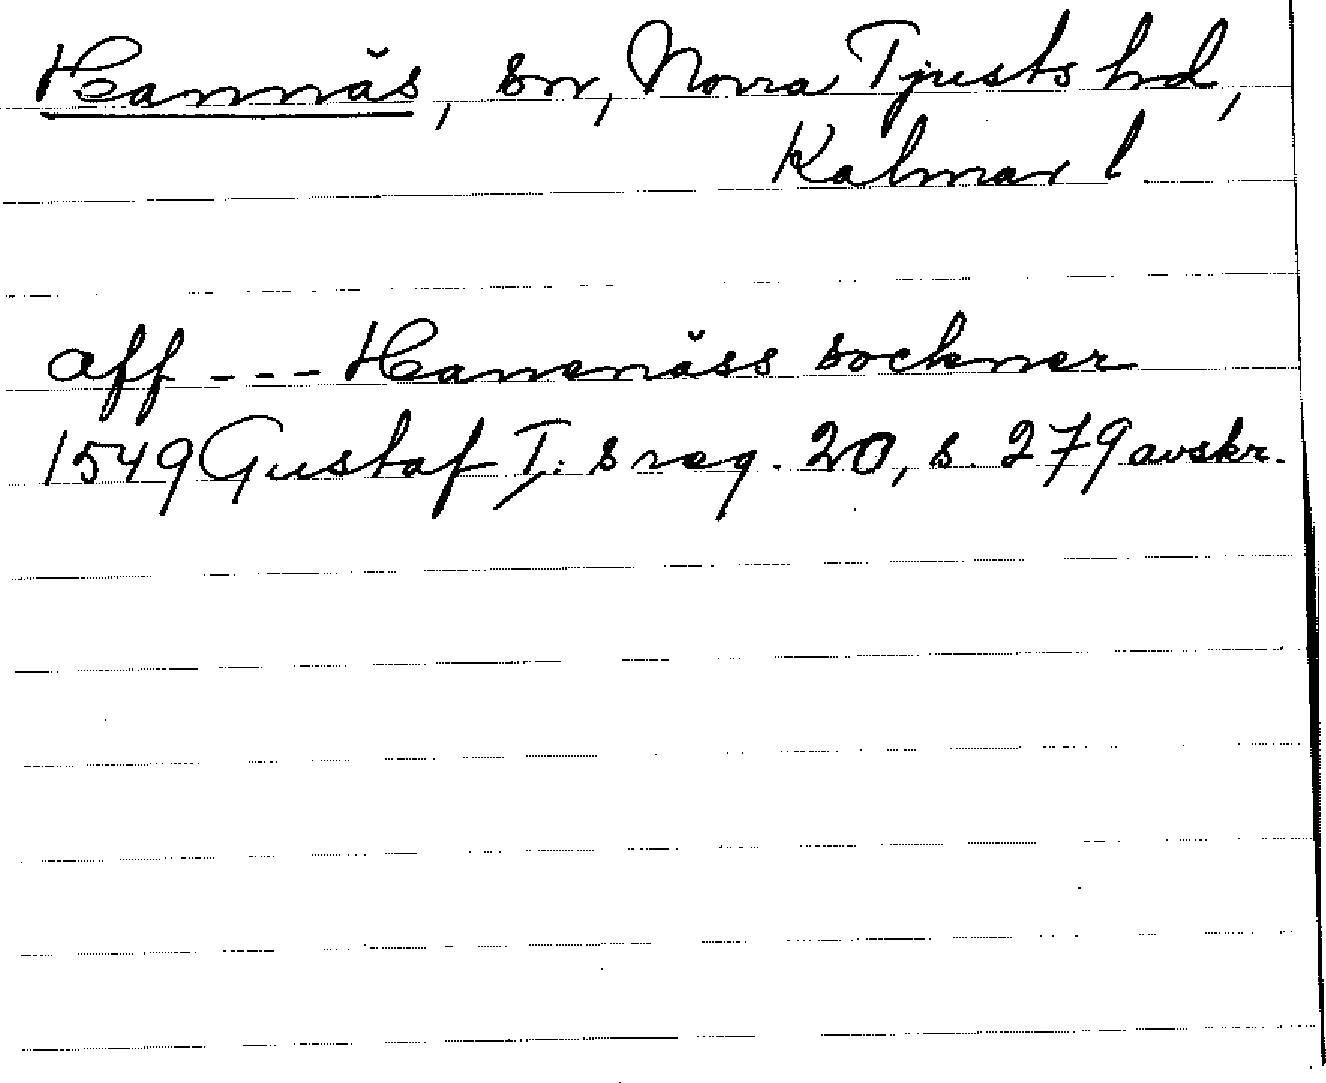 Hannäs, sn, Norra Tjusts hd,
Kalmar l
aff --- Hanenäss sockner
1549 Gustaf I:s reg. 20, s. 279 avskr.